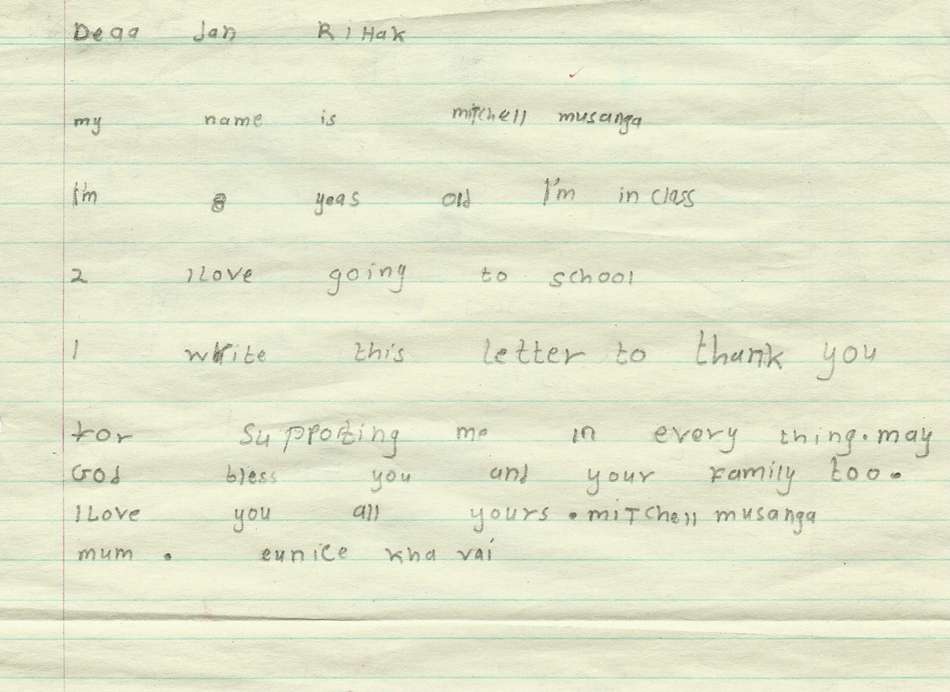 Deaa Jan RiHak
my name is mitchell musanga
I'm 8 yeas old I'm in class
2 I Love going to school
I write this letter to thank you
For supporting me in every thing. may
God bless you and your family too.
I Love you all yours. miTchell musanga
mum. eunice kha vai